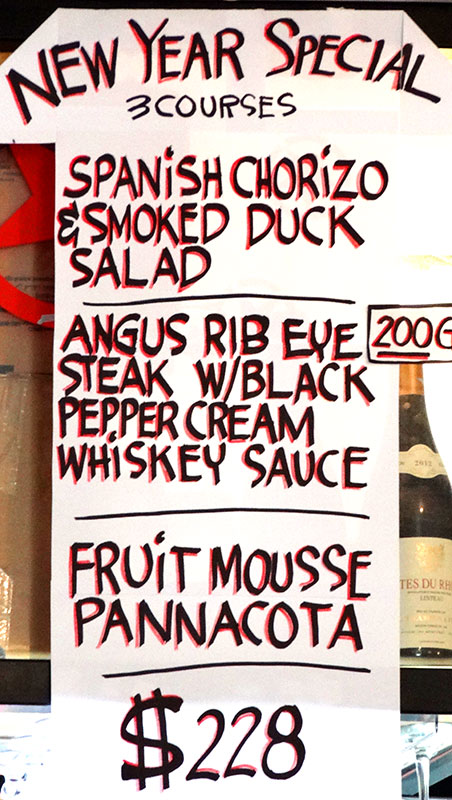 NEW YEAR SPECIAL
3 COURSES
SPANISH CHORIZO
& SMOKED DUCK
SALAD
ANGUS RIB EYE
200G
STEAK W/BLACK
PEPPER CREAM
WHISKEY SAUCE
FRUIT MOUSSE
PANNACOTA
$228
2012
TES DU RH